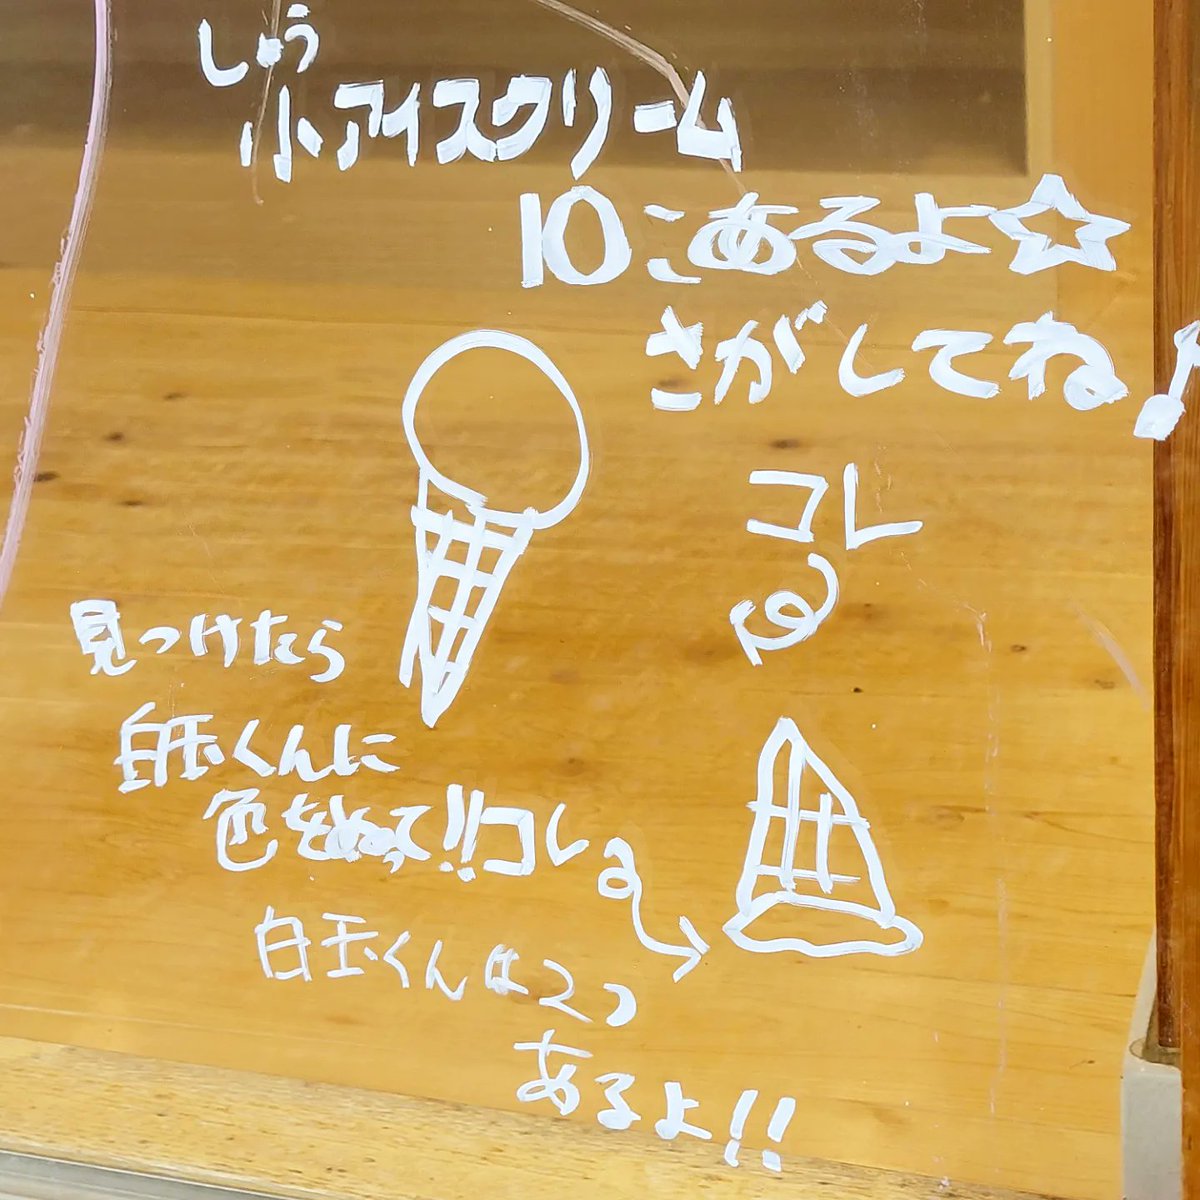 しょう
小アイスクリーム
10こあるよ☆
さがしてね!
コレ
見つけたら
白玉くんに
色をぬって!!コレ
白玉くんは2つ
あるよ!!